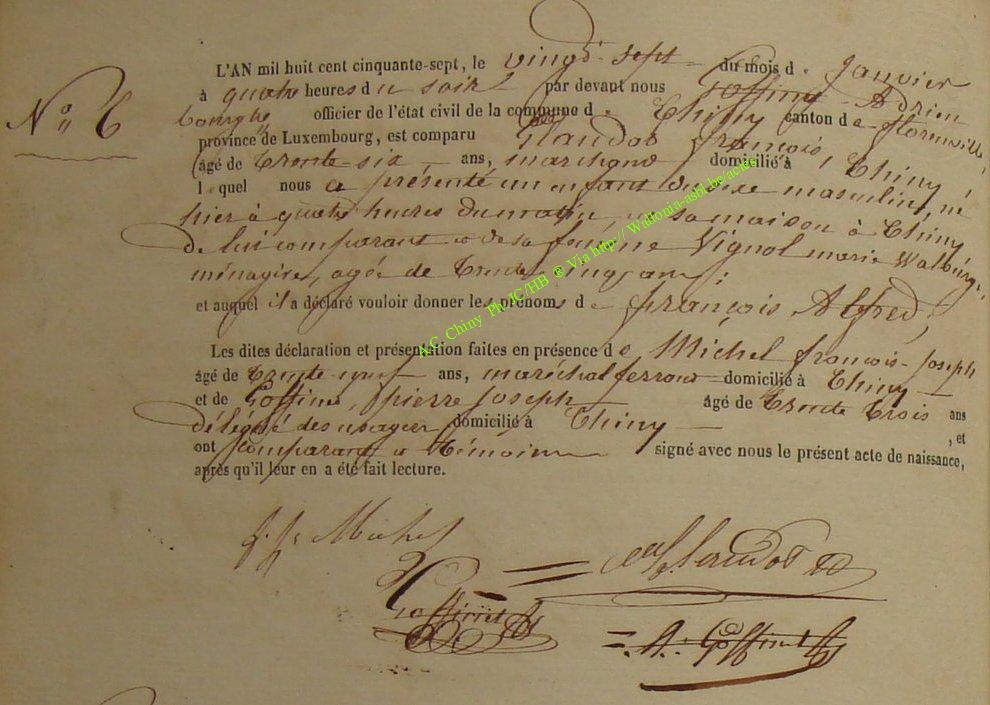 N° 6
L'AN mil huit cent cinquante-sept, le vingt sept du mois d. Janvier
à quatre heures du soir par devant nous Goffinet Adrien
officier de l'état civil de la commune d. Chiny canton de florenville,
province de Luxembourg, est comparu Glaudot françois,
âgé de trente-six ans, marchand domicilié à Chiny,
lequel nous a présenté un enfant de sexe masculin, né
hier à quatre heures du matin, en sa maison à Chiny
de lui comparant et de sa femme Vignol marie Walburge
ménagère, agée de trente cinq ans;
et auquel il a déclaré vouloir donner les prénoms de françois Alfred,
Les dites déclaration et présentation faites en présence de Michel françois-Joseph
âgé de trente-neuf ans, maréchal ferrant domicilié à Chiny
et de Goffinet, pierre Joseph âgé de trente trois ans
délégué des usagers domicilié à Chiny , et
ont comparant et témoins signé avec nous le présent acte de naissance,
après qu'il leur en a été fait lecture.
f. J. Michel
Glaudot
Goffinet
A. Goffinet
A.C. Chiny Ph JC/HB ® Via http:// Wallonia-asbl.be/actes